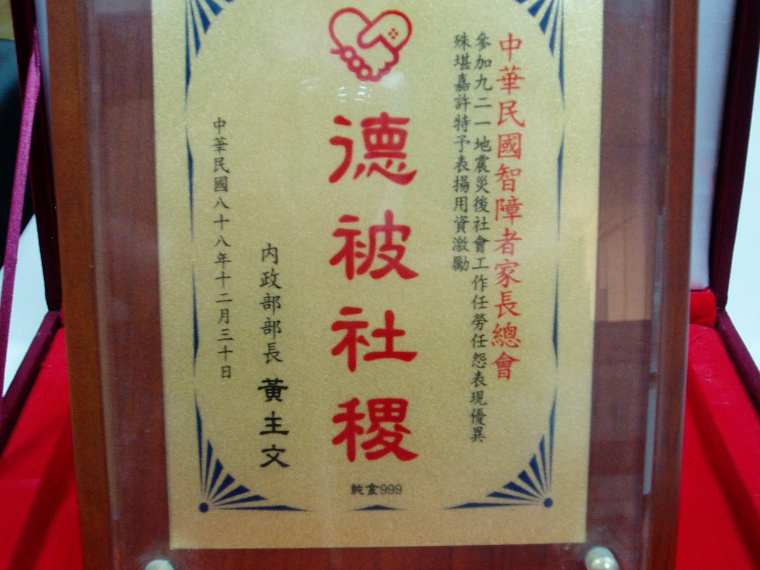 中華民國智障者家長總會
參加九二一地震災後社會工作任勞任怨表現優異
殊堪嘉許特予表揚用資激勵
德被社稷
內政部部長 黃主文
中華民國八十八年十二月三十日
純金999